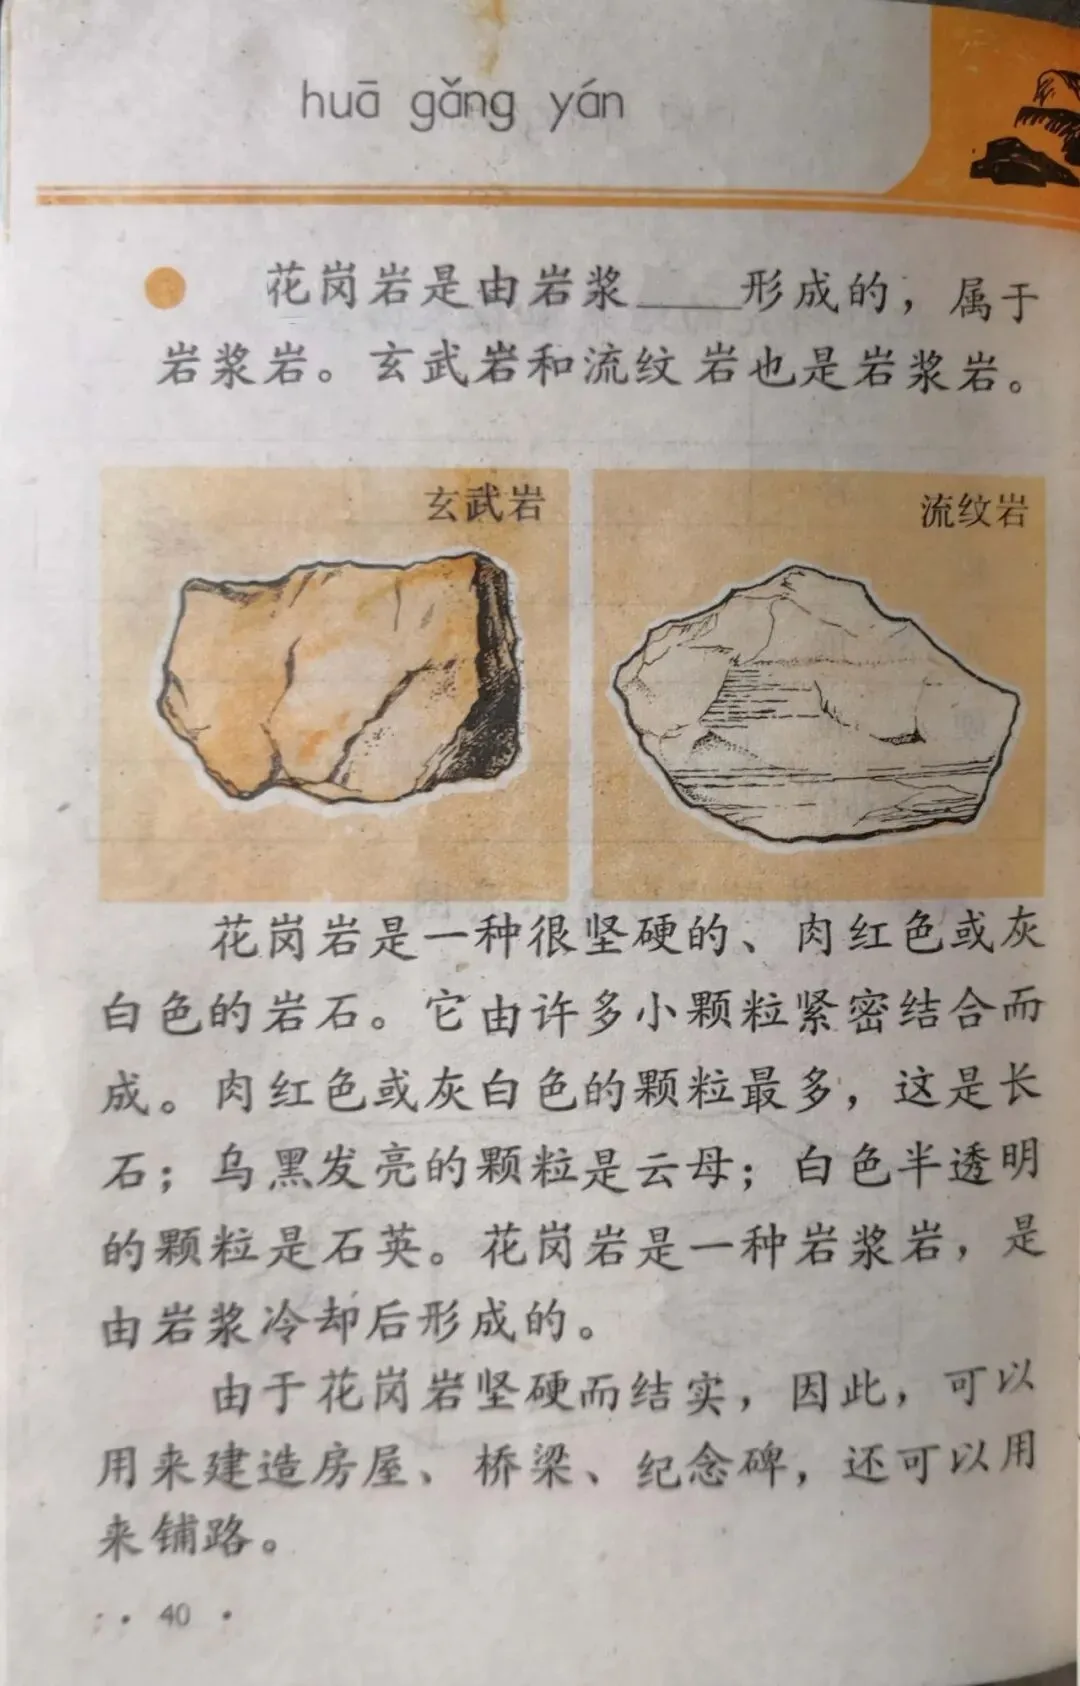 huā gǎng yán
花岗岩是由岩浆____形成的，属于
岩浆岩。玄武岩和流纹岩也是岩浆岩。
玄武岩
流纹岩
花岗岩是一种很坚硬的、肉红色或灰
白色的岩石。它由许多小颗粒紧密结合而
成。肉红色或灰白色的颗粒最多，这是长
石；乌黑发亮的颗粒是云母；白色半透明
的颗粒是石英。花岗岩是一种岩浆岩，是
由岩浆冷却后形成的。
由于花岗岩坚硬而结实，因此，可以
用来建造房屋、桥梁、纪念碑，还可以用
来铺路。
· 40 ·